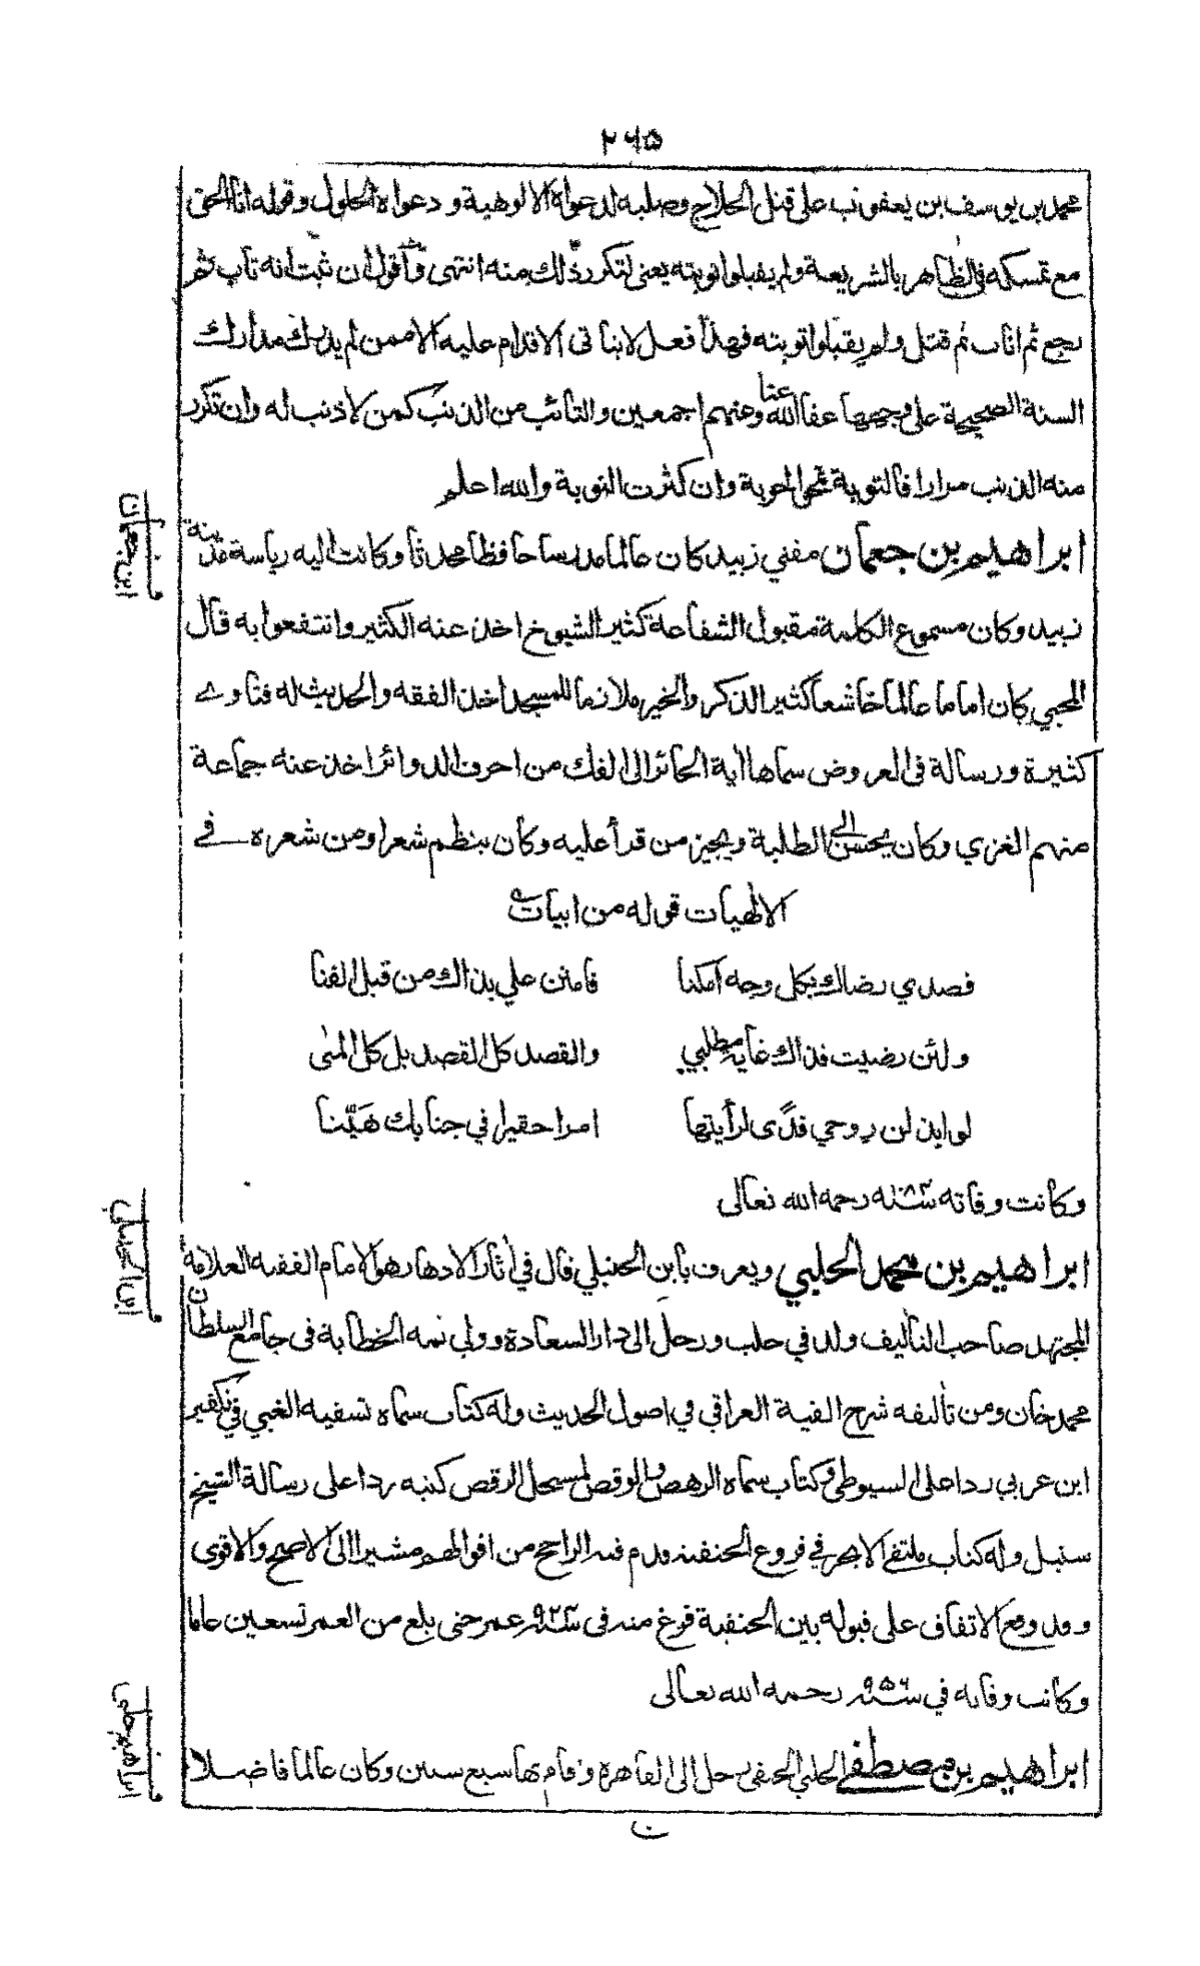 ٢٦٥
محمد بن يوسف بن يعقوب على قتل الحلاج وصلبه لدعواه الالوهية ودعواه الحلول وقوله انا الحق
مع تمسكه في الظاهر بالشريعة ولم يقبلوا توبته يعني لتكرر ذلك منه انتهى واقول ان ثبت انه تاب ثم
رجع ثم اناب ثم قتل ولم يقبلوا توبته فهذا فعل لا يتاتى الاقدام عليه الا ممن لم يدرك مدارك
السنة الصحيحة على وجهها عفا الله عنا وعنهم اجمعين والتائب من الذنب كمن لا ذنب له وان تكرر
منه الذنب مرارا فالتوبة تمحي الحوبة وان كثرت النوبة والله اعلم
ابراهيم بن جعمان مفتي زبيد كان عالما مدرسا حافظا محدثا وكانت اليه رياسة مدينة
زبيد وكان مسموع الكلمة مقبول الشفاعة كثير الشيوخ اخذ عنه الكثير وانتفعوا به قال
المحبي كان اماما عالما خاشعا كثير الذكر والخير ملازما للمسجد اخذ الفقه والحديث له فتاوى
كثيرة ورسالة في العروض سماها اية الحائر الى الفك من احرف الدوائر اخذ عنه جماعة
منهم الغزي وكان يحسن الى الطلبة ويجيز من قرأ عليه وكان ينظم شعرا ومن شعره في
الالهيات قوله من ابيات
قصدي رضاك بكل وجه امكنا فامنن علي بذاك من قبل الفنا
ولئن رضيت فذاك غاية مطلبي والقصد كل القصد بل كل المنى
لو ابذلن روحي فدًى لرأيتها امرا حقيرا في جنابك هَيّنا
وكانت وفاته سنة ١٠٨٣ رحمه الله تعالى
ابراهيم بن محمد الحلبي ويعرف بابن الحنبلي قال في آثار الادهار هو الامام الفقيه العلامة
المجتهد صاحب التأليف ولد في حلب ورحل الى دار السعادة وولي ثمه الخطابة في جامع السلطان
محمد خان ومن تأليفه شرح الفية العراقي في اصول الحديث وله كتاب سماه تسفيه الغبي في تكفير
ابن عربي ردا على السيوطي وكتاب سماه الرهص والوقص لمستحل الرقص كتبه ردا على رسالة الشيخ
سنبل وله كتاب ملتقى الابحر في فروع الحنفية قدم فيه الراجح من اقوالهم مشيرا الى الاصح والاقوى
وقد وقع الاتفاق على قبوله بين الحنفية فرغ منه في سنة ٩٢٣ عمر حتى بلغ من العمر تسعين عاما
وكانت وفاته في سنة ٩٥٦ رحمه الله تعالى
ابراهيم بن مصطفى الحلبي الحنفي رحل الى القاهرة وقام بها سبع سنين وكان عالما فاضلا
ابن جعمان
ابن الحنبلي
ابراهيم حلبي